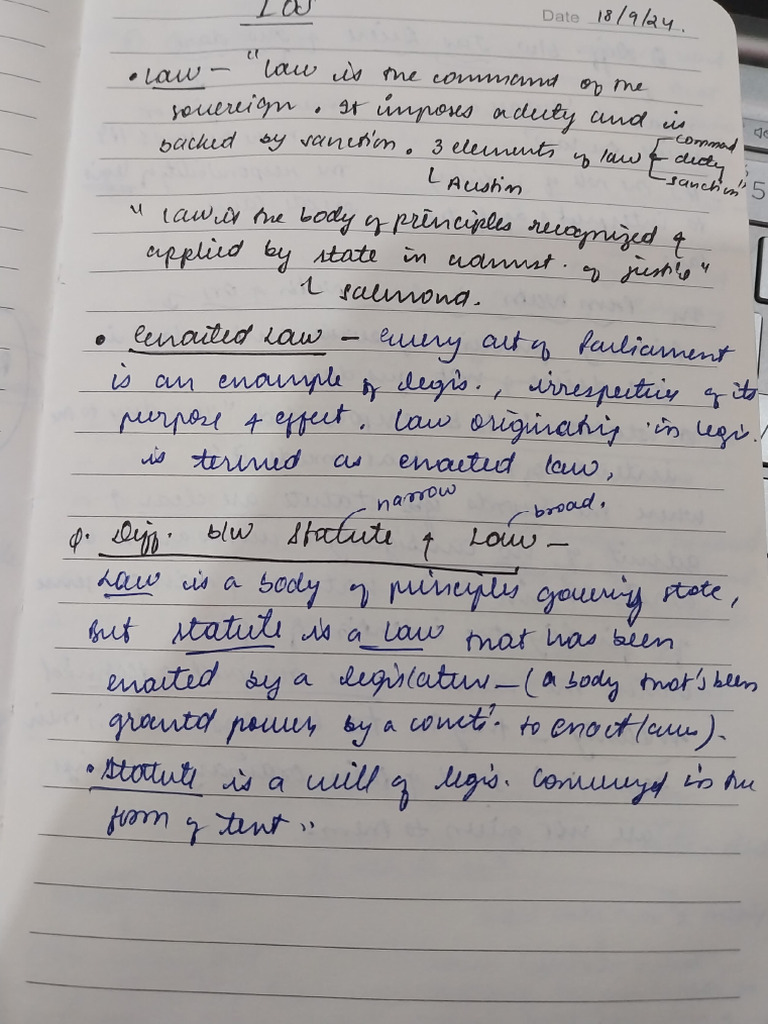 IOS
Date 18/9/24.
• Law – "Law is the command of the
sovereign. It imposes a duty and is
backed by sanction. 3 elements of law
command
duty
sanction"
Austin
"Law is the body of principles recognized &
applied by state in admist. of justice"
Salmond.
• Enacted Law – Every act of Parliament
is an example of legis., irrespective of its
purpose & effect. Law originating in legis.
is termed as enacted law,
narrow
broad.
Q. Diff. b/w Statute & Law –
Law is a body of principles governing state,
But statute is a law that has been
enacted by a legislature – (a body that's been
grantd power by a consti. to enact laws).
• Statute is a will of legis. conveyed in the
form of text"
5